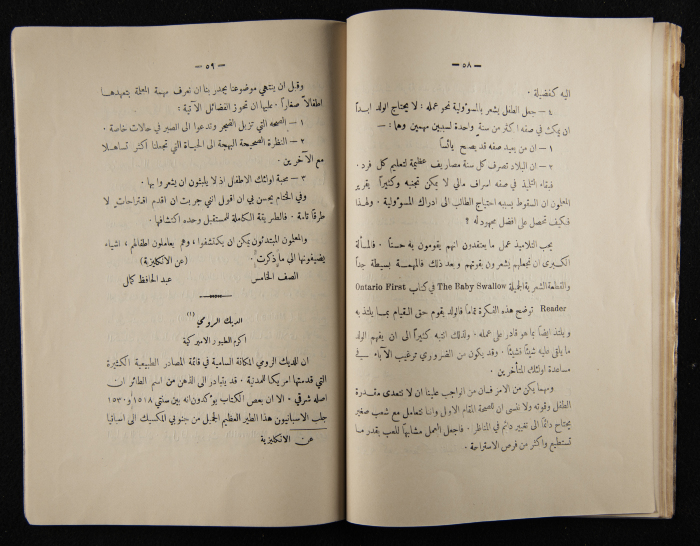 — ٥٨ —
اليه كفضيلة .
٤ – جعل الطفل يشعر بالمسؤولية نحو عمله : لا يحتاج الولد ابداً
ان يمكث في صفه اكثر من سنة واحدة لسببين مهمين وهما : —
١ – ان من يعيد صفه قد يصبح يائساً
٢ – ان البلاد تصرف كل سنة مصاريف عظيمة لتعليم كل فرد .
فبقاء التلميذ في صفه اسراف مالي لا يمكن تجنبه وكثيراً يقرر
المعلمون ان السقوط يسببه احتياج الطالب الى ادراك المسؤولية . ولهذا
فكيف نحصل على افضل مجهود له ؟
يحب التلاميذ عمل ما يعتقدون انهم يقومون به حسناً . فالمسألة
الكبرى ان نجعلهم يشعرون بقوتهم وبعد ذلك فالمهمة بسيطة جداً
والقطعة الشعرية الجميلة The Baby Swallow في كتاب Ontario First
Reader توضح هذه الفكرة تماماً فالولد يقوم حق القيام بما يلتذ به
ويلتذ ايضاً بما هو قادر على عمله . ولذلك انتبه كثيراً الى ان يفهم الولد
ما يلقى عليه شيئاً فشيئاً . وقد يكون من الضروري ترغيب الآباء في
مساعدة اولئك المتأخرين .
ومهما يكن من الامر فمان من الواجب علينا ان لا نتعدى مقدرة
الطفل وقوته ولا ننسى ان للصحة المقام الاول واننا نتعامل مع شعب صغير
يحتاج دائماً الى تغيير دائم في المناظر . فاجعل العمل مشابهاً للعب بقدر ما
تستطيع واكثر من فرص الاستراحة .
— ٥٩ —
وقبل ان ينتهي موضوعنا يجدر بنا ان نعرف مهمة المعلمة بتعهدها
اطفالاً صغاراً . عليها ان تحوز الفضائل الآتية :
١ – الصحة التي تزيل الضجر وتدعوا الى الصبر في حالات خاصة .
٢ – النظرة الصحيحة البهجة الى الحياة التي تجعلنا اكثر تساهلا
مع الآخرين .
٣ – محبة اولئك الاطفال اذ لا يلبثون ان يشعروا بها .
وفي الختام يحسن بي ان اقول انني جربت ان اقدم اقتراحات لا
طرقاً تامة . فالطريقة الكاملة للمستقبل وحده اكتشافها .
والمعلمون المبتدئون يمكن ان يكتشفوا ، وهم يعاملون اطفالهم ، اشياء
يضيفونها الى ما ذكرت . (عن الانكليزية)
الصف الخامس عبد الحافظ كمال
الديك الرومي (١)
اكرم الطيور الاميركية
ان للديك الرومي المكانة السامية في قائمة المصادر الطبيعية الكثيرة
التي قدمتها امريكا للمدنية . قد يتبادر الى الذهن من اسم الطائر ان
اصله شرقي . الا ان بعض الكتاب يؤكدون انه بين سنتي ١٥١٨ و ١٥٣٠
جلب الاسبانيون هذا الطير العظيم الجميل من جنوبي المكسيك الى اسبانيا
عن الانكليزية